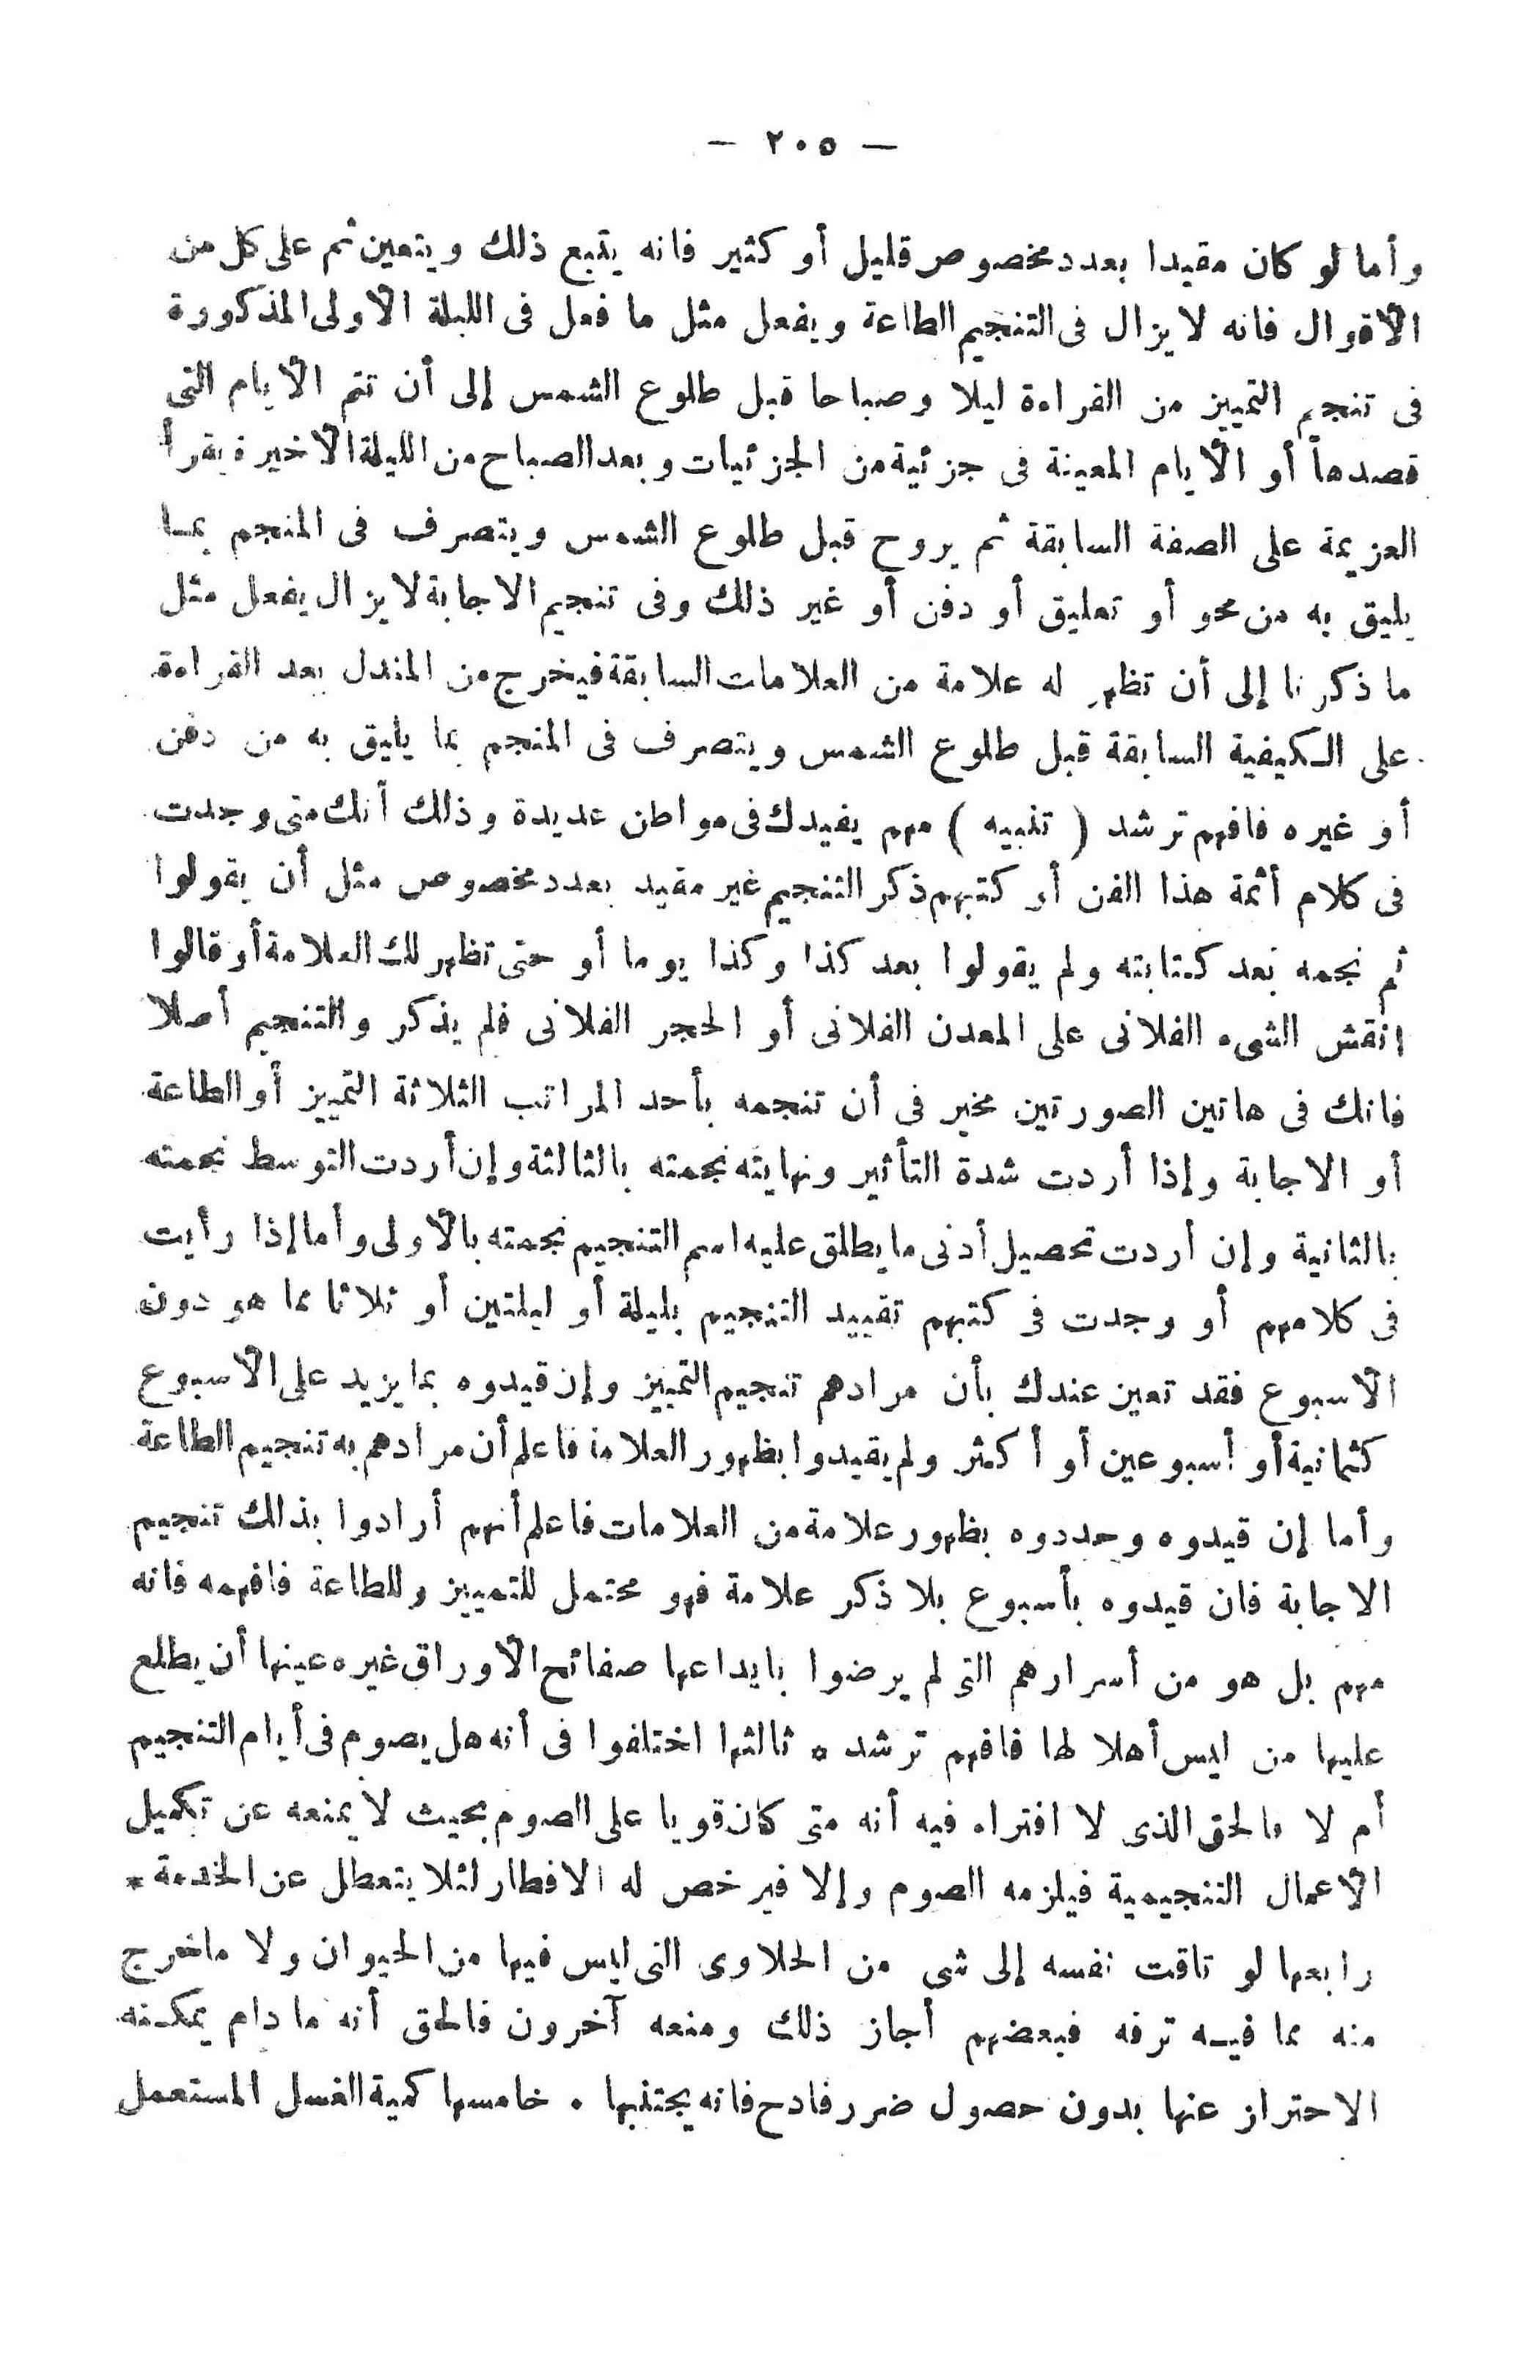 — ٢٠٥ —
وأما لو كان مقيدا بعدد مخصوص قليل أو كثير فانه يتبع ذلك ويتعين ثم على كل من
الأقوال فانه لا يزال فى التنجيم الطاعة ويفعل مثل ما فعل فى الليلة الأولى المذكورة
فى تنجيم التمييز من القراءة ليلا وصباحا قبل طلوع الشمس إلى أن تتم الأيام التى
قصدها أو الأيام المعينة فى جزئية من الجزئيات وبعد الصباح من الليلة الأخيرة يقرأ
العزيمة على الصفة السابقة ثم يروح قبل طلوع الشمس ويتصرف فى المنجم بما
يليق به من محو أو تعليق أو دفن أو غير ذلك وفى تنجيم الاجابة لا يزال يفعل مثل
ما ذكرنا إلى أن تظهر له علامة من العلامات السابقة فيخرج من المندل بعد القراءة
على الكيفية السابقة قبل طلوع الشمس ويتصرف فى المنجم بما يليق به من دفن
أو غيره فافهم ترشد ( تنبيه ) مهم يفيدك فى مواطن عديدة وذلك أنك متى وجدت
فى كلام أئمة هذا الفن أو كتبهم ذكر التنجيم غير مقيد بعدد مخصوص مثل أن يقولوا
ثم نجمه بعد كتابته ولم يقولوا بعد كذا وكذا يوما أو حتى تظهر لك العلامة أو قالوا
انقش الشىء الفلانى على المعدن الفلانى أو الحجر الفلانى فلم يذكر والتنجيم أصلا
فانك فى هاتين الصورتين مخير فى أن تنجمه بأحد المراتب الثلاثة التمييز أو الطاعة
أو الاجابة وإذا أردت شدة التأثير ونهايته نجمته بالثالثة وإن أردت التوسط نجمته
بالثانية وإن أردت تحصيل أدنى ما يطلق عليه اسم التنجيم نجمته بالأولى وأما إذا رأيت
فى كلامهم أو وجدت فى كتبهم تقييد التنجيم بليلة أو ليلتين أو ثلاثا مما هو دون
الأسبوع فقد تعين عندك بأن مرادهم تنجيم التمييز وإن قيدوه بما يزيد على الأسبوع
كثمانية أو أسبوعين أو أكثر ولم يقيدوا بظهور العلامة فاعلم أن مرادهم به تنجيم الطاعة
وأما إن قيدوه وحددوه بظهور علامة من العلامات فاعلم أنهم أرادوا بذلك تنجيم
الاجابة فان قيدوه بأسبوع بلا ذكر علامة فهو محتمل للتمييز وللطاعة فافهمه فانه
مهم بل هو من أسرارهم التى لم يرضوا بايداعها صفائح الأوراق غيره عينها أن يطلع
عليها من ليس أهلا لها فافهم ترشد * ثالثها اختلفوا فى أنه هل يصوم فى أيام التنجيم
أم لا فالحق الذى لا افتراء فيه أنه متى كان قويا على الصوم بحيث لا يمنعه عن تكميل
الأعمال التنجيمية فيلزمه الصوم وإلا فيرخص له الافطار لئلا يتعطل عن الخدمة *
رابعها لو تاقت نفسه إلى شى من الحلاوى التى ليس فيها من الحيوان ولا ما خرج
منه مما فيه ترفه فبعضهم أجاز ذلك ومنعه آخرون فالحق أنه ما دام يمكنه
الاحتراز عنها بدون حصول ضرر فادح فانه يجتنبها . خامسها كمية الغسل المستعمل